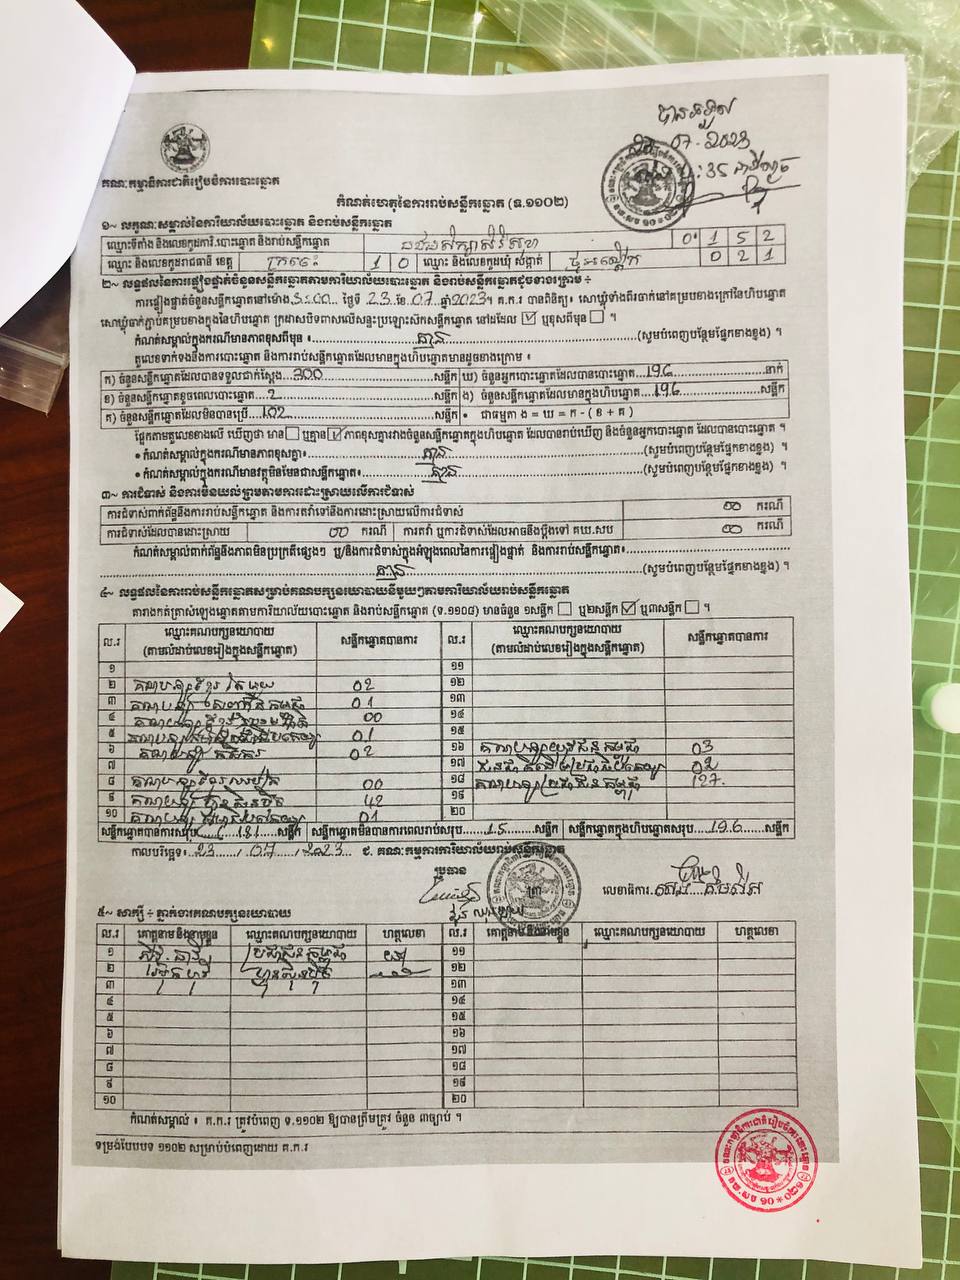 បានទទួល
07 - 2023
: 35 នាទី
គណៈកម្មាធិការជាតិរៀបចំការបោះឆ្នោត
កំណត់ហេតុនៃការរាប់សន្លឹកឆ្នោត (ទ.១១០២)
១~ លក្ខណៈសម្គាល់នៃការិយាល័យបោះឆ្នោត និងរាប់សន្លឹកឆ្នោត
ឈ្មោះទីតាំង និងលេខកូដការិ.បោះឆ្នោត និងរាប់សន្លឹកឆ្នោត 0 1 5 2
ឈ្មោះ និងលេខកូដរាជធានី ខេត្ត ក្រចេះ 1 0 ឈ្មោះ និងលេខកូដឃុំ សង្កាត់ 0 2 1
២~ លទ្ធផលនៃការផ្ទៀងផ្ទាត់ចំនួនសន្លឹកឆ្នោតតាមការិយាល័យបោះឆ្នោត និងរាប់សន្លឹកឆ្នោតដូចខាងក្រោម ÷
ការផ្ទៀងផ្ទាត់ចំនួនសន្លឹកឆ្នោតនៅម៉ោង 3:00 ថ្ងៃទី 23 ខែ 07 ឆ្នាំ 2023។ គ.ក.រ បានពិនិត្យ៖ សោឃ្លុំទាំងពីរចាក់នៅគម្របខាងក្រៅនៃហិបឆ្នោត
សោឃ្លុំចាក់ភ្ជាប់គម្របខាងក្នុងនៃហិបឆ្នោត ក្រដាសបិទពាសលើសន្ទះប្រឡោះស៊កសន្លឹកឆ្នោត នៅដដែល ☑ ឬខុសពីមុន ☐ ។
កំណត់សម្គាល់ក្នុងករណីមានភាពខុសពីមុន ៖ គ្មាន (សូមបំពេញបន្ថែមផ្នែកខាងខ្នង) ។
តួលេខទាក់ទងនឹងការបោះឆ្នោត និងការរាប់សន្លឹកឆ្នោតដែលមានក្នុងហិបឆ្នោតមានដូចខាងក្រោម ៖
ក) ចំនួនសន្លឹកឆ្នោតដែលបានទទួលជាក់ស្តែង 300 សន្លឹក ឃ) ចំនួនអ្នកបោះឆ្នោតដែលបានបោះឆ្នោត 196 នាក់
ខ) ចំនួនសន្លឹកឆ្នោតខូចពេលបោះឆ្នោត 2 សន្លឹក ង) ចំនួនសន្លឹកឆ្នោតដែលមាននៅក្នុងហិបឆ្នោត 196 សន្លឹក
គ) ចំនួនសន្លឹកឆ្នោតដែលមិនបានប្រើ 102 សន្លឹក • ជាធម្មតា ង = ឃ = ក - ( ខ + គ )
ផ្អែកតាមតួលេខខាងលើ ឃើញថា មាន ☐ ឬគ្មាន ☑ ភាពខុសគ្នារវាងចំនួនសន្លឹកឆ្នោតក្នុងហិបឆ្នោត ដែលបានរាប់ឃើញ និងចំនួនអ្នកបោះឆ្នោត ដែលបានបោះឆ្នោត ។
• កំណត់សម្គាល់ក្នុងករណីមានភាពខុសគ្នា៖ គ្មាន (សូមបំពេញបន្ថែមផ្នែកខាងខ្នង) ។
• កំណត់សម្គាល់ក្នុងករណីមានវត្ថុមិនមែនជាសន្លឹកឆ្នោត៖ គ្មាន (សូមបំពេញបន្ថែមផ្នែកខាងខ្នង) ។
៣~ ការជំទាស់ និងការមិនយល់ព្រមតាមការដោះស្រាយលើការជំទាស់
ការជំទាស់ពាក់ព័ន្ធនឹងការរាប់សន្លឹកឆ្នោត និងការតវ៉ាទៅនឹងការដោះស្រាយលើការជំទាស់ 00 ករណី
ការជំទាស់ដែលបានដោះស្រាយ 00 ករណី ការតវ៉ា ឬការជំទាស់ដែលអាចនឹងប្តឹងទៅ គឃ.សប 00 ករណី
កំណត់សម្គាល់ពាក់ព័ន្ធនឹងភាពមិនប្រក្រតីផ្សេងៗ ឬ/និងការជំទាស់ក្នុងអំឡុងពេលនៃការផ្ទៀងផ្ទាត់ និងការរាប់សន្លឹកឆ្នោត៖
គ្មាន (សូមបំពេញបន្ថែមផ្នែកខាងខ្នង) ។
៤~ លទ្ធផលនៃការរាប់សន្លឹកឆ្នោតសម្រាប់គណបក្សនយោបាយនីមួយៗតាមការិយាល័យបោះឆ្នោត និងរាប់សន្លឹកឆ្នោត
តារាងកត់ត្រាសំឡេងឆ្នោតតាមការិយាល័យបោះឆ្នោត និងរាប់សន្លឹកឆ្នោត (ទ.១១០៨) មានចំនួន ១សន្លឹក ☐ ឬ២សន្លឹក ☑ ឬ៣សន្លឹក ☐ ។
ល.រ ឈ្មោះគណបក្សនយោបាយ (តាមលំដាប់លេខរៀងក្នុងសន្លឹកឆ្នោត) សន្លឹកឆ្នោតបានការ ល.រ ឈ្មោះគណបក្សនយោបាយ (តាមលំដាប់លេខរៀងក្នុងសន្លឹកឆ្នោត) សន្លឹកឆ្នោតបានការ
១ ១១
២ គណបក្សខ្មែរតែមួយ 02 ១២
៣ គណបក្ស 01 ១៣
៤ គណបក្សខ្មែរ 00 ១៤
៥ គណបក្ស 01 ១៥
៦ គណបក្សកសិករ 02 ១៦ គណបក្សយុវជនកម្ពុជា 03
៧ ១៧ 02
៨ គណបក្សខ្មែរ 00 ១៨ គណបក្សប្រជាជនកម្ពុជា 127
៩ គណបក្សហ៊្វុនស៊ិនប៉ិច 42 ១៩
១០ គណបក្ស 01 ២០
សន្លឹកឆ្នោតបានការសរុប 181 សន្លឹក សន្លឹកឆ្នោតមិនបានការពេលរាប់សរុប 15 សន្លឹក សន្លឹកឆ្នោតក្នុងហិបឆ្នោតសរុប 196 សន្លឹក
កាលបរិច្ឆេទ៖ 23 / 07 / 2023 ជ. គណៈកម្មការការិយាល័យរាប់សន្លឹកឆ្នោត
ប្រធាន
លេខាធិការ
៥~ សាក្សី ÷ ភ្នាក់ងារគណបក្សនយោបាយ
ល.រ គោត្តនាម និងនាមខ្លួន ឈ្មោះគណបក្សនយោបាយ ហត្ថលេខា ល.រ គោត្តនាម និងនាមខ្លួន ឈ្មោះគណបក្សនយោបាយ ហត្ថលេខា
១ ប្រជាជនកម្ពុជា ១១
២ ហ៊្វុនស៊ិនប៉ិច ១២
៣ ១៣
៤ ១៤
៥ ១៥
៦ ១៦
៧ ១៧
៨ ១៨
៩ ១៩
១០ ២០
កំណត់សម្គាល់ ៖ គ.ក.រ ត្រូវបំពេញ ទ.១១០២ ឱ្យបានត្រឹមត្រូវ ចំនួន ៣ច្បាប់ ។
ទម្រង់បែបបទ ១១០២ សម្រាប់បំពេញដោយ គ.ក.រ
គណៈកម្មាធិការជាតិរៀបចំការបោះឆ្នោត
គឃ.សប ១០*០២១